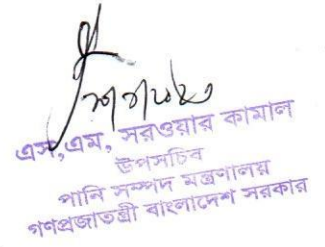 এস,এম, সরওয়ার কামাল
উপসচিব
পানি সম্পদ মন্ত্রণালয়
গণপ্রজাতন্ত্রী বাংলাদেশ সরকার